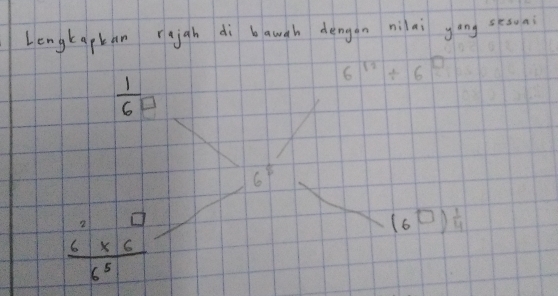 Lengkapkan rajah di bawah dengan nilai yang sesuai
1/6^□
6^12 ÷ 6^□
6^8
(6^□)^1/4
6^2 × 6^□ / 6^5